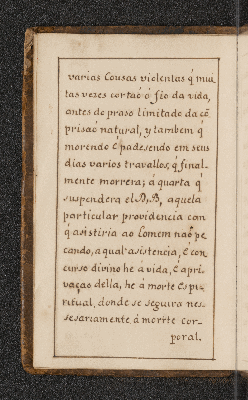 varias Cousas violentas q̃ mui
tas vezes cortaõ o fio da vida,
antes de praso limitado da cõ
prisaõ natural, y tambem q̃
morendo e padesendo em seus
dias varios travallos, q̃ final-
mente morrera; a quarta q̃
suspendera el D,B, aquela
particular providencia con
q̃ asistiria ao homem naõ pe
cando, a qual asistencia, e con
curso divino he a vida, e a pri-
vaçaõ della, he a morte Espi-
ritual, donde se seguira nes-
sesariamente a morrte cor-
poral.